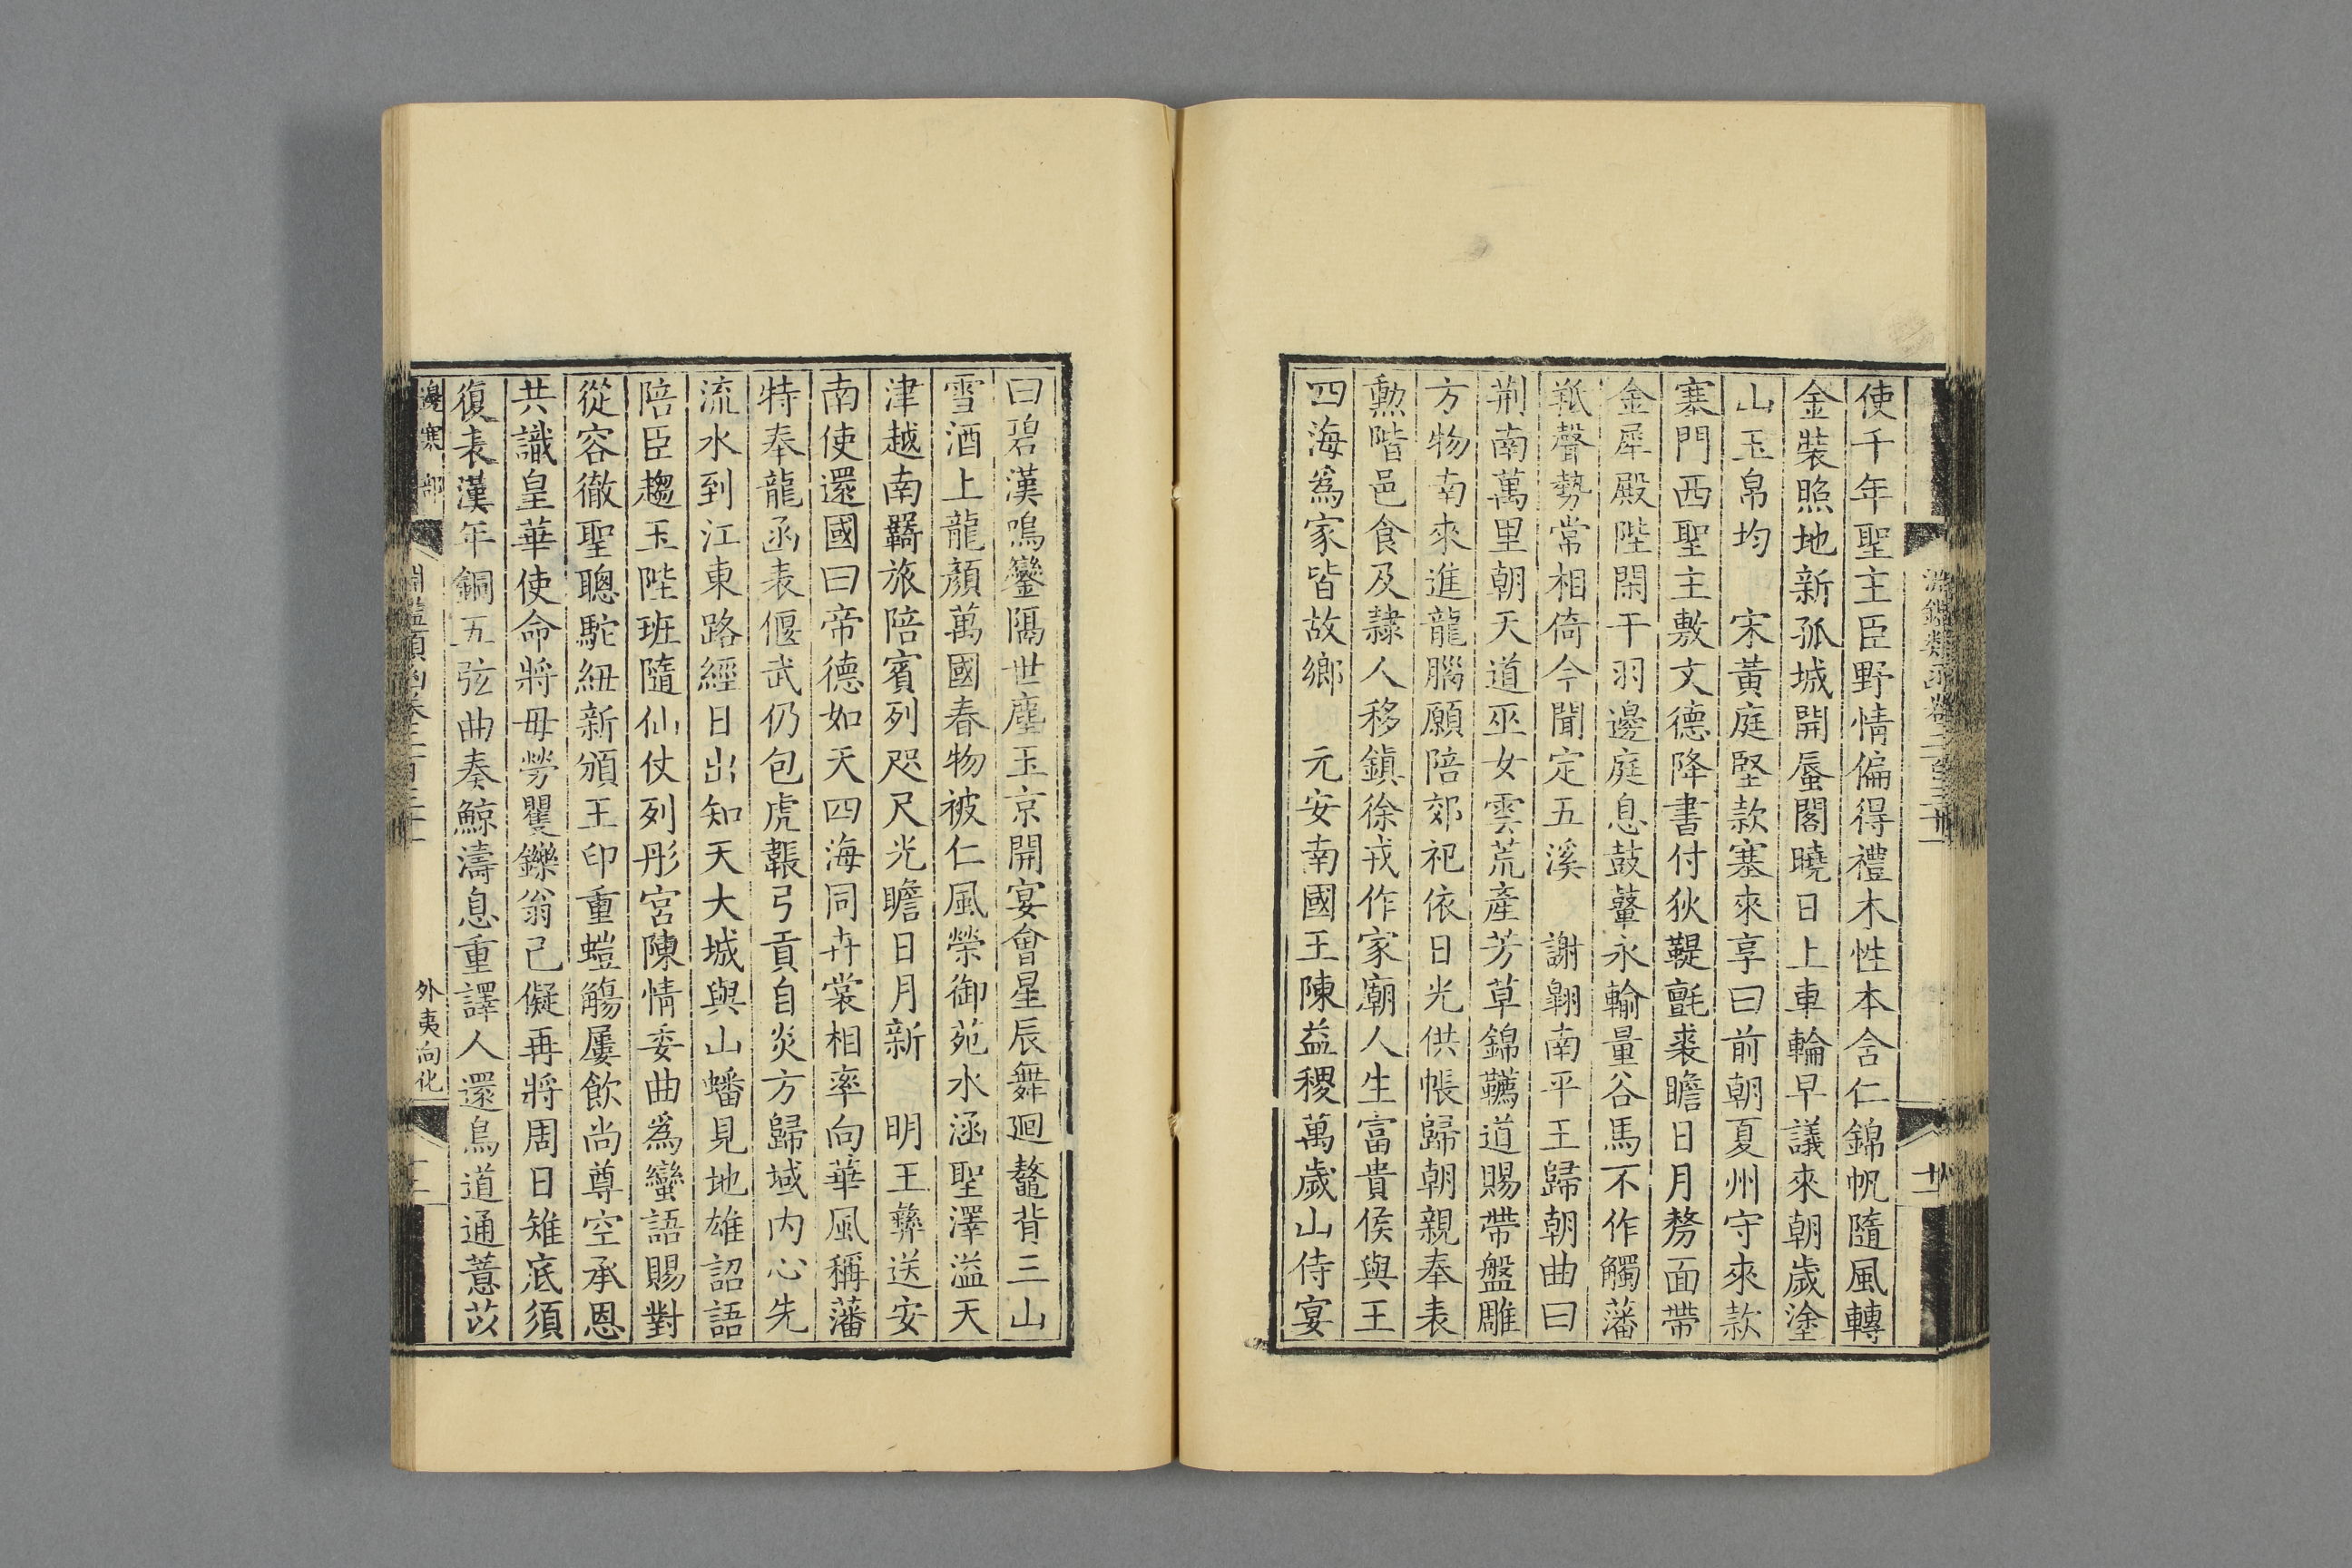 使千年聖主臣野情偏得禮木性本含仁錦帆隨風轉
金裝照地新孤城開蜃閣曉日上車輪早議來朝歲塗
山玉帛均　宋黃庭堅款塞來享曰前朝夏州守來款
寨門西聖主敷文德降書付狄鞮氈裘瞻日月剺面帶
金犀殿陛閑干羽邊庭息鼓鼙永輸量谷馬不作觸藩
羝聲勢常相倚今聞定五溪　謝翺南平王歸朝曲曰
荆南萬里朝天道巫女雲荒產芳草錦韉道賜帶盤雕
方物南來進龍腦願陪郊祀依日光供帳歸朝親奉表
勲階邑食及隸人移鎮徐戎作家廟人生富貴侯與王
四海爲家皆故鄉　元安南國王陳益稷萬歲山侍宴
曰碧漢鳴鑾隔世塵玉京開宴會星辰舞廻鼇背三山
雪酒上龍顏萬國春物被仁風榮御苑水涵聖澤溢天
津越南羇旅陪賓列咫尺光瞻日月新　明王彝送安
南使還國曰帝德如天四海同卉裳相率向華風稱藩
特奉龍函表偃武仍包虎韔弓貢自炎方歸域内心先
流水到江東路經日出知天大城與山蟠見地雄詔語
陪臣趨玉陛班隨仙仗列彤宮陳情委曲爲蠻語賜對
從容徹聖聰駝紐新頒王印重螘觴屢飲尚尊空承恩
共識皇華使命將毋勞矍鑠翁已儗再將周日雉底須
復表漢年銅五弦曲奏鯨濤息重譯人還鳥道通薏苡
邊寨部
外夷向化